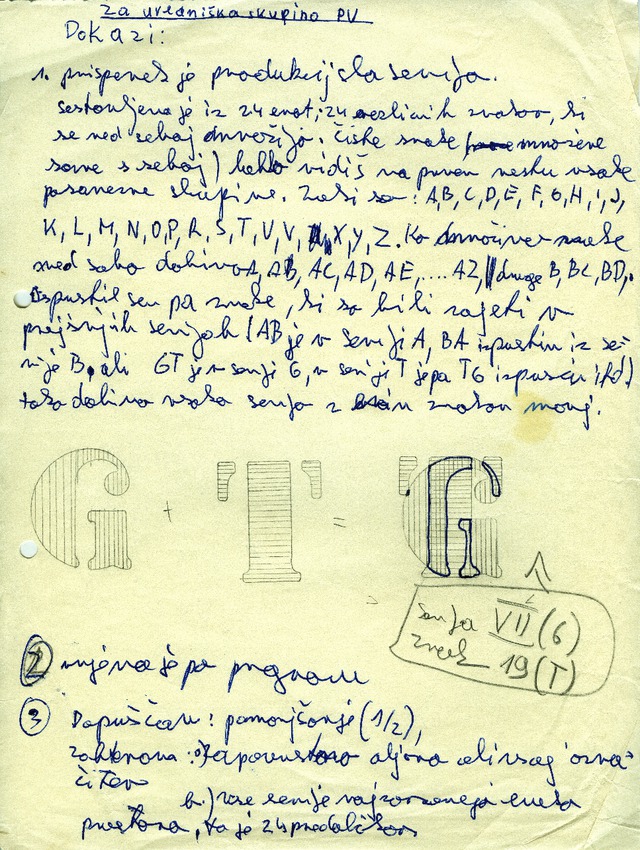 za uredniško skupino PV
Dokazi:
1. prispevek je produkcijsla serija.
sestavljena je iz 24 enot; 24 različnih znakov, ki
se med seboj množijo. čiste znake (množene
same s seboj) lahko vidiš na prvem mestu vsake
posamezne skupine. Znaki so: A,B,C,D,E,F,G,H,I,J,
K,L,M,N,O,P,R,S,T,U,V,X,Y,Z. Ko množimo znake
med sabo dobimo A, AB, AC, AD, AE,.... AZ, druge B, BC, BD,.
Izpustil sem pa znake, ki so bili zajeti v
prejšnjih serijah (AB je v seriji A, BA izpustim iz se-
rije B, ali GT je v seriji G, v seriji T je pa TG izpuščen itd.)
tako dobimo vsako serijo z znakom manj.
G + T = G
serija VII (G)
znak 19 (T)
2 je po programu
3 Dopuščam: pomanjšanje (1/2),
Zahtevam: a.) zaporedno ali vsaj ozna-
čitev
b.) vse serije najzaresnega
prostora, to je 24 predalčkov